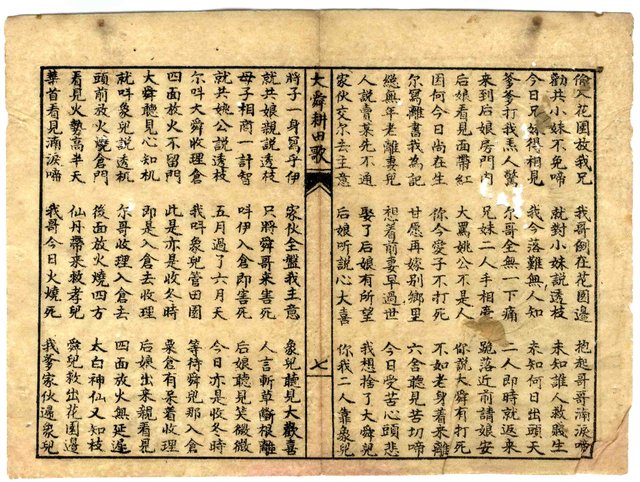 偷入花園救我兄 我哥倒在花園邊 抱起哥哥涌淚啼
勸共小妹不免啼 就對小妹說透枝 未知誰人救賤生
今日兄妹得相見 我今落難無人知 未知何日出頭天
爹爹打我焦人驚 尔哥全無一下痛 二人即時就返来
来到后娘房門内 兄妹二人手相牽 跪落近前請娘安
后娘看見面帶紅 大罵姚公不是人 你說大舜有打死
因何今日尚在生 你今愛子不打死 不如老身着来離
尔寫離書我為記 甘愿再嫁別鄉里 六舍聽見苦切啼
縂無年老離妻兒 想着前妻早過世 今日受苦心頭悲
人說賣某先不通 娶了后娘有所望 我想捨了大舜兒
家伙交尔去主意 后娘听說心大喜 你我二人靠象兒
大舜耕田歌 七
將子一身寫乎伊 家伙全盤我主意 象兒聽見大歡喜
就共娘親說透枝 只將舜哥来害死 人言斬草斷根離
母子相商一計智 叫伊入倉即害死 后娘聽見笑微微
就共姚公說透枝 五月過了六月天 今日亦是收冬時
尔叫大舜收理倉 我叫象兒管田園 等待舜兒那入倉
四面放火不留門 此是亦是收冬時 粟倉有呆着收理
大舜聽見心知机 即是入倉去收理 后娘出来親看見
就叫象兒說透机 尔哥收理入倉去 四面放火無延遲
頭前放火燒倉門 後面放火燒四方 太白神仙又知枝
看見火勢高半天 仙丹帶来救孝兒 兒救出花園邊
舉首看見涌淚啼 我哥今日火燒死 我爹家伙過象兒